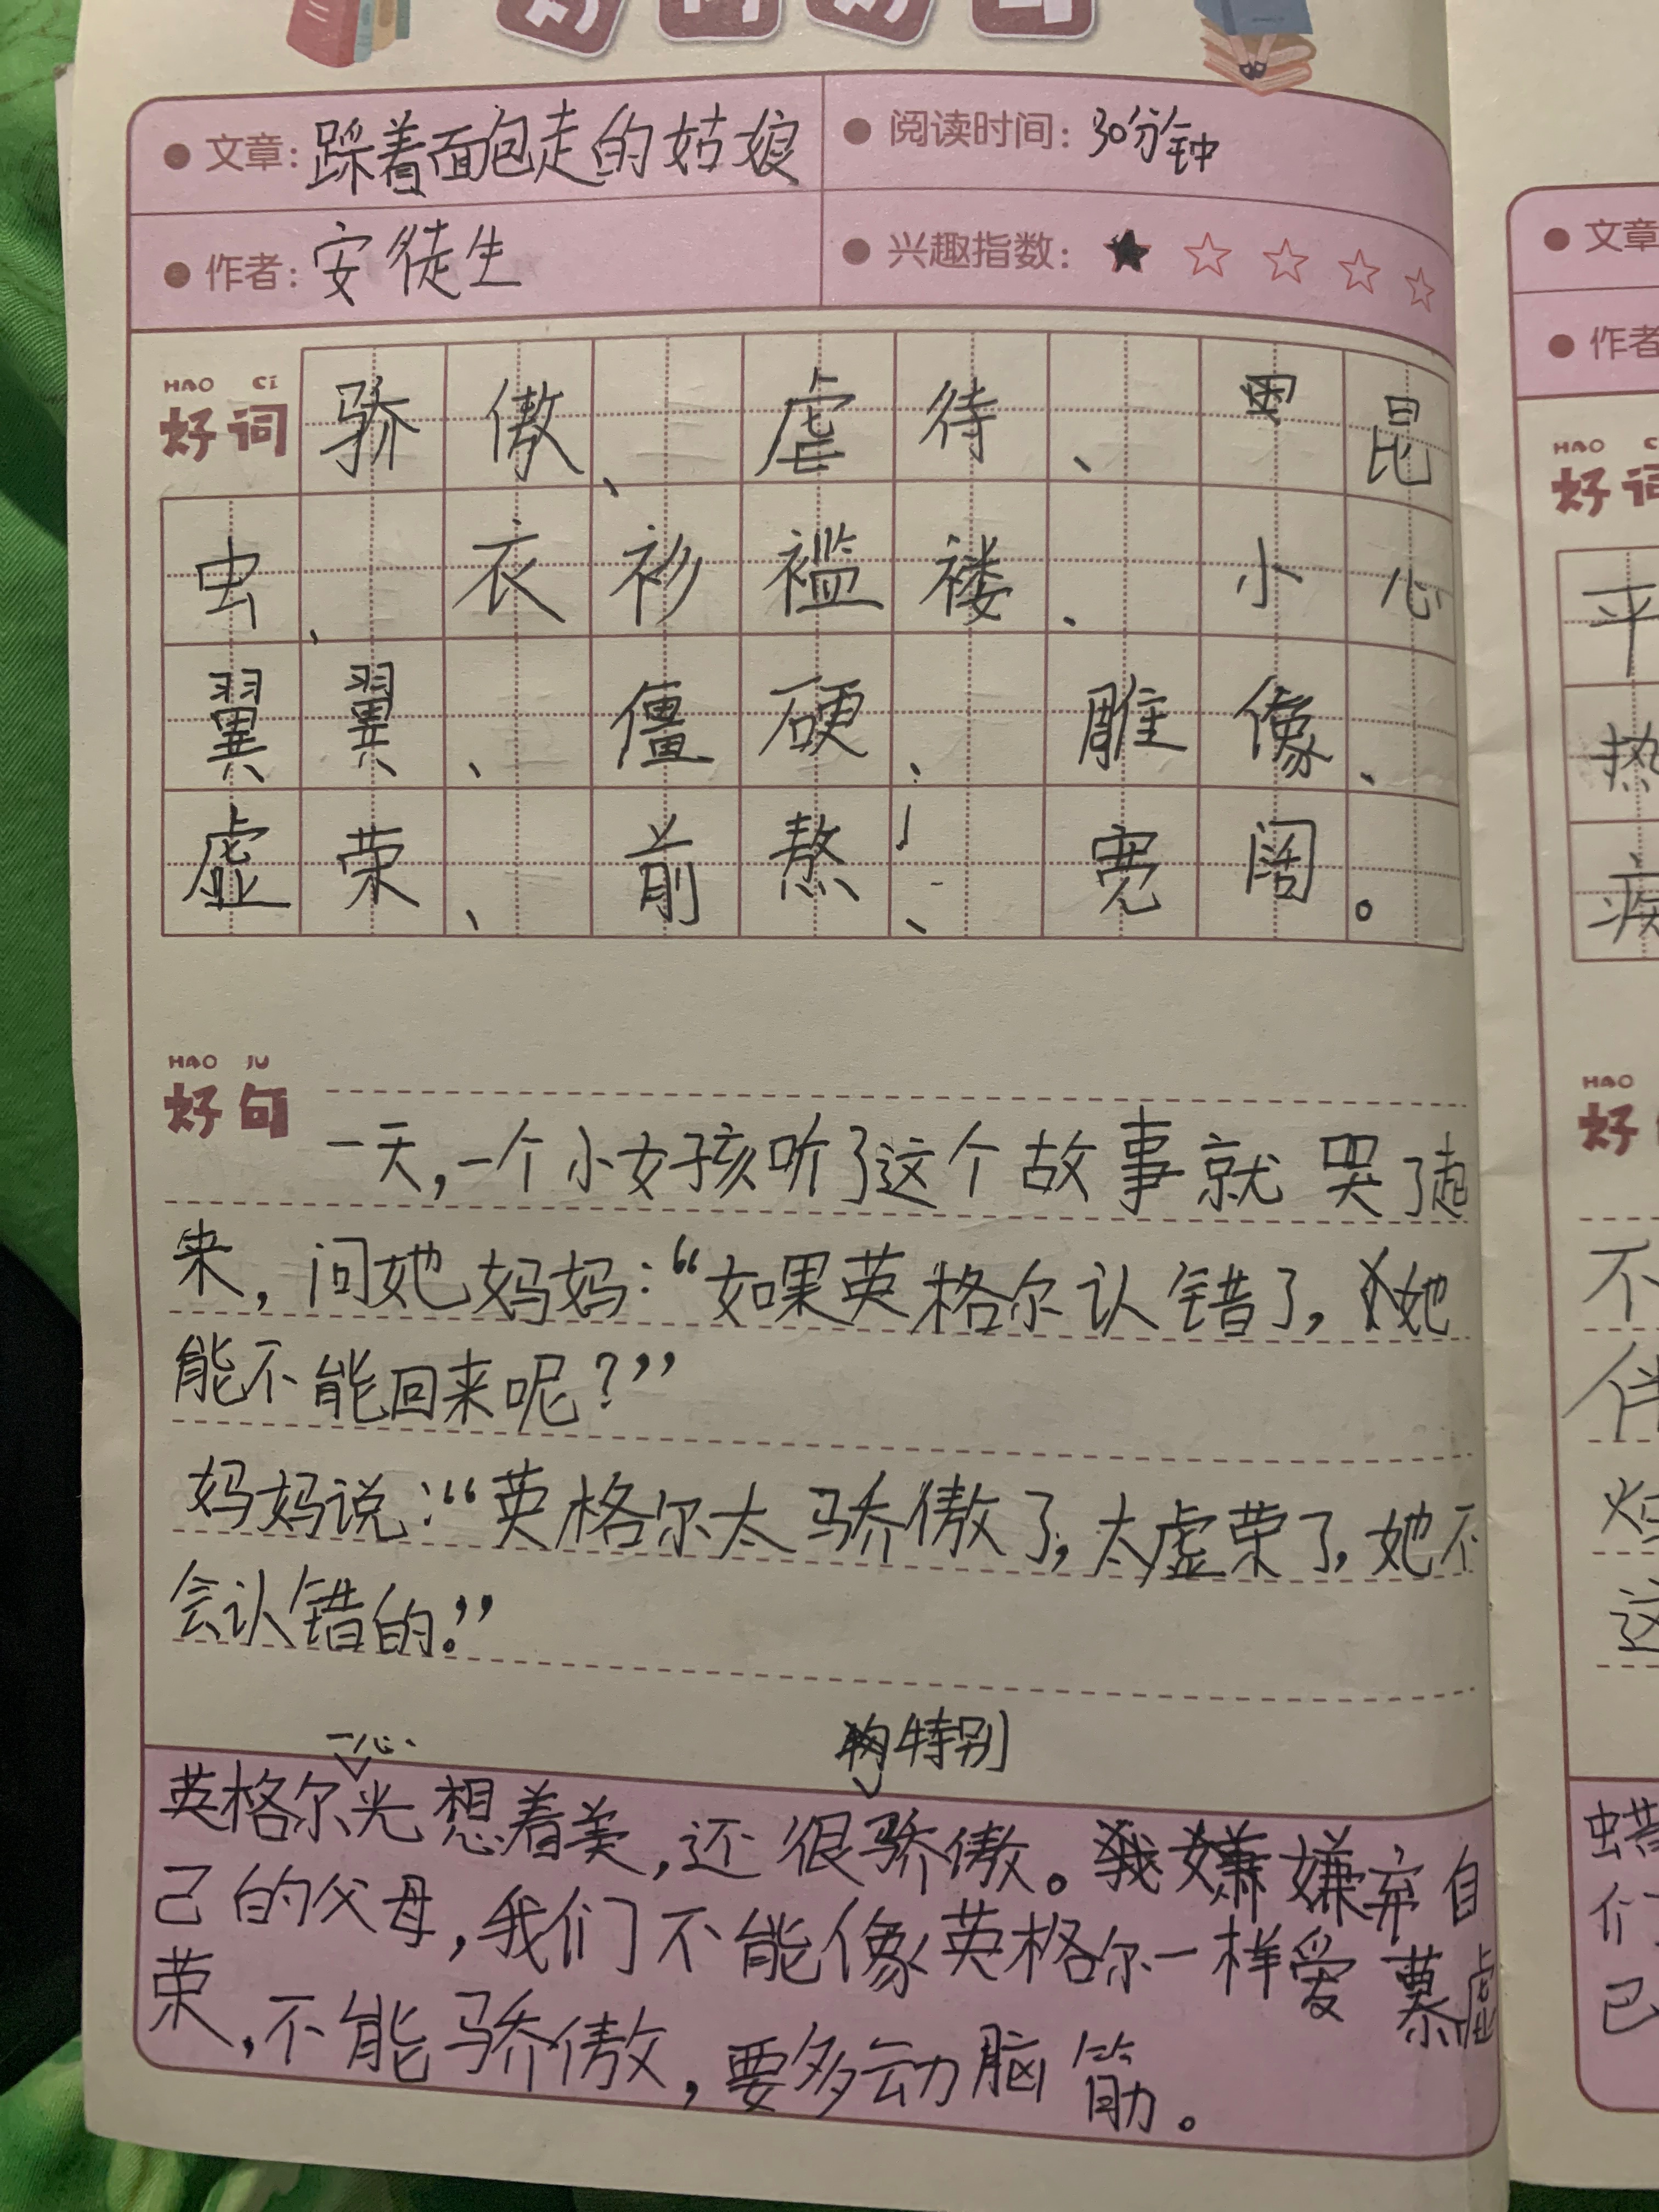 好词好句
文章：踩着面包走的姑娘
阅读时间：30分钟
作者：安徒生
兴趣指数：★☆☆☆☆
HAO CI
好词
骄傲、虐待、昆
虫、衣衫褴褛、小心
翼翼、僵硬、雕像、
虚荣、煎熬、宽阔。
HAO JU
好句
一天，一个小女孩听了这个故事就哭了起
来，问她妈妈：“如果英格尔认错了，她
能不能回来呢？”
妈妈说：“英格尔太骄傲了，太虚荣了，她不
会认错的。”
一心
特别
英格尔光想着美，还很骄傲。嫌弃自
己的父母，我们不能像英格尔一样爱慕虚
荣，不能骄傲，要多动脑筋。
文章
作者
HAO C
好词
平
热
HAO
好
不
这
们
己